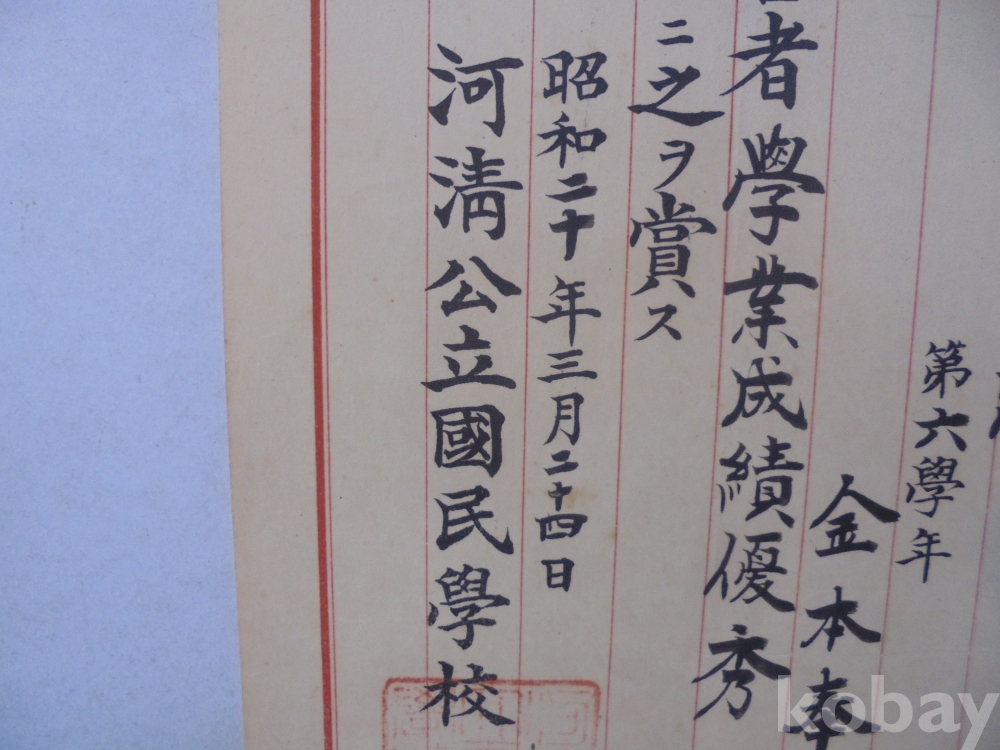 第六學年
金本奉
者學業成績優秀
ニ之ヲ賞ス
昭和二十年三月二十四日
河淸公立國民學校
kobay